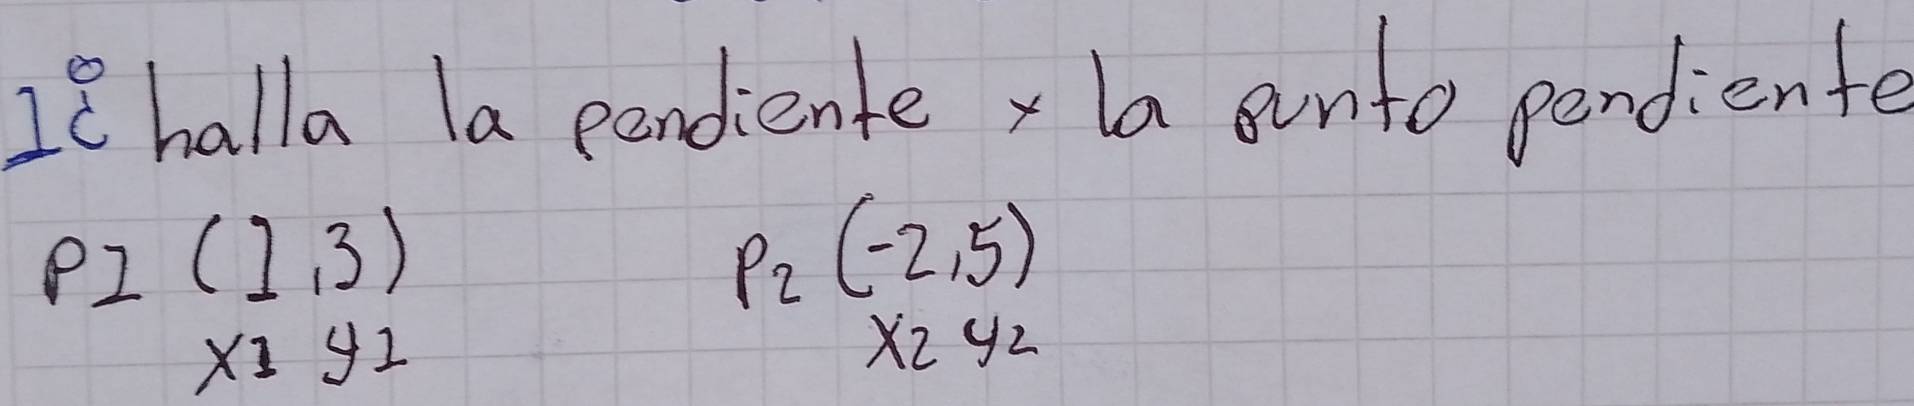 1° halla la pendiente y la punto pendiente
P1 (1,3) P2 (-2,5)
x1 y1 x2 y2